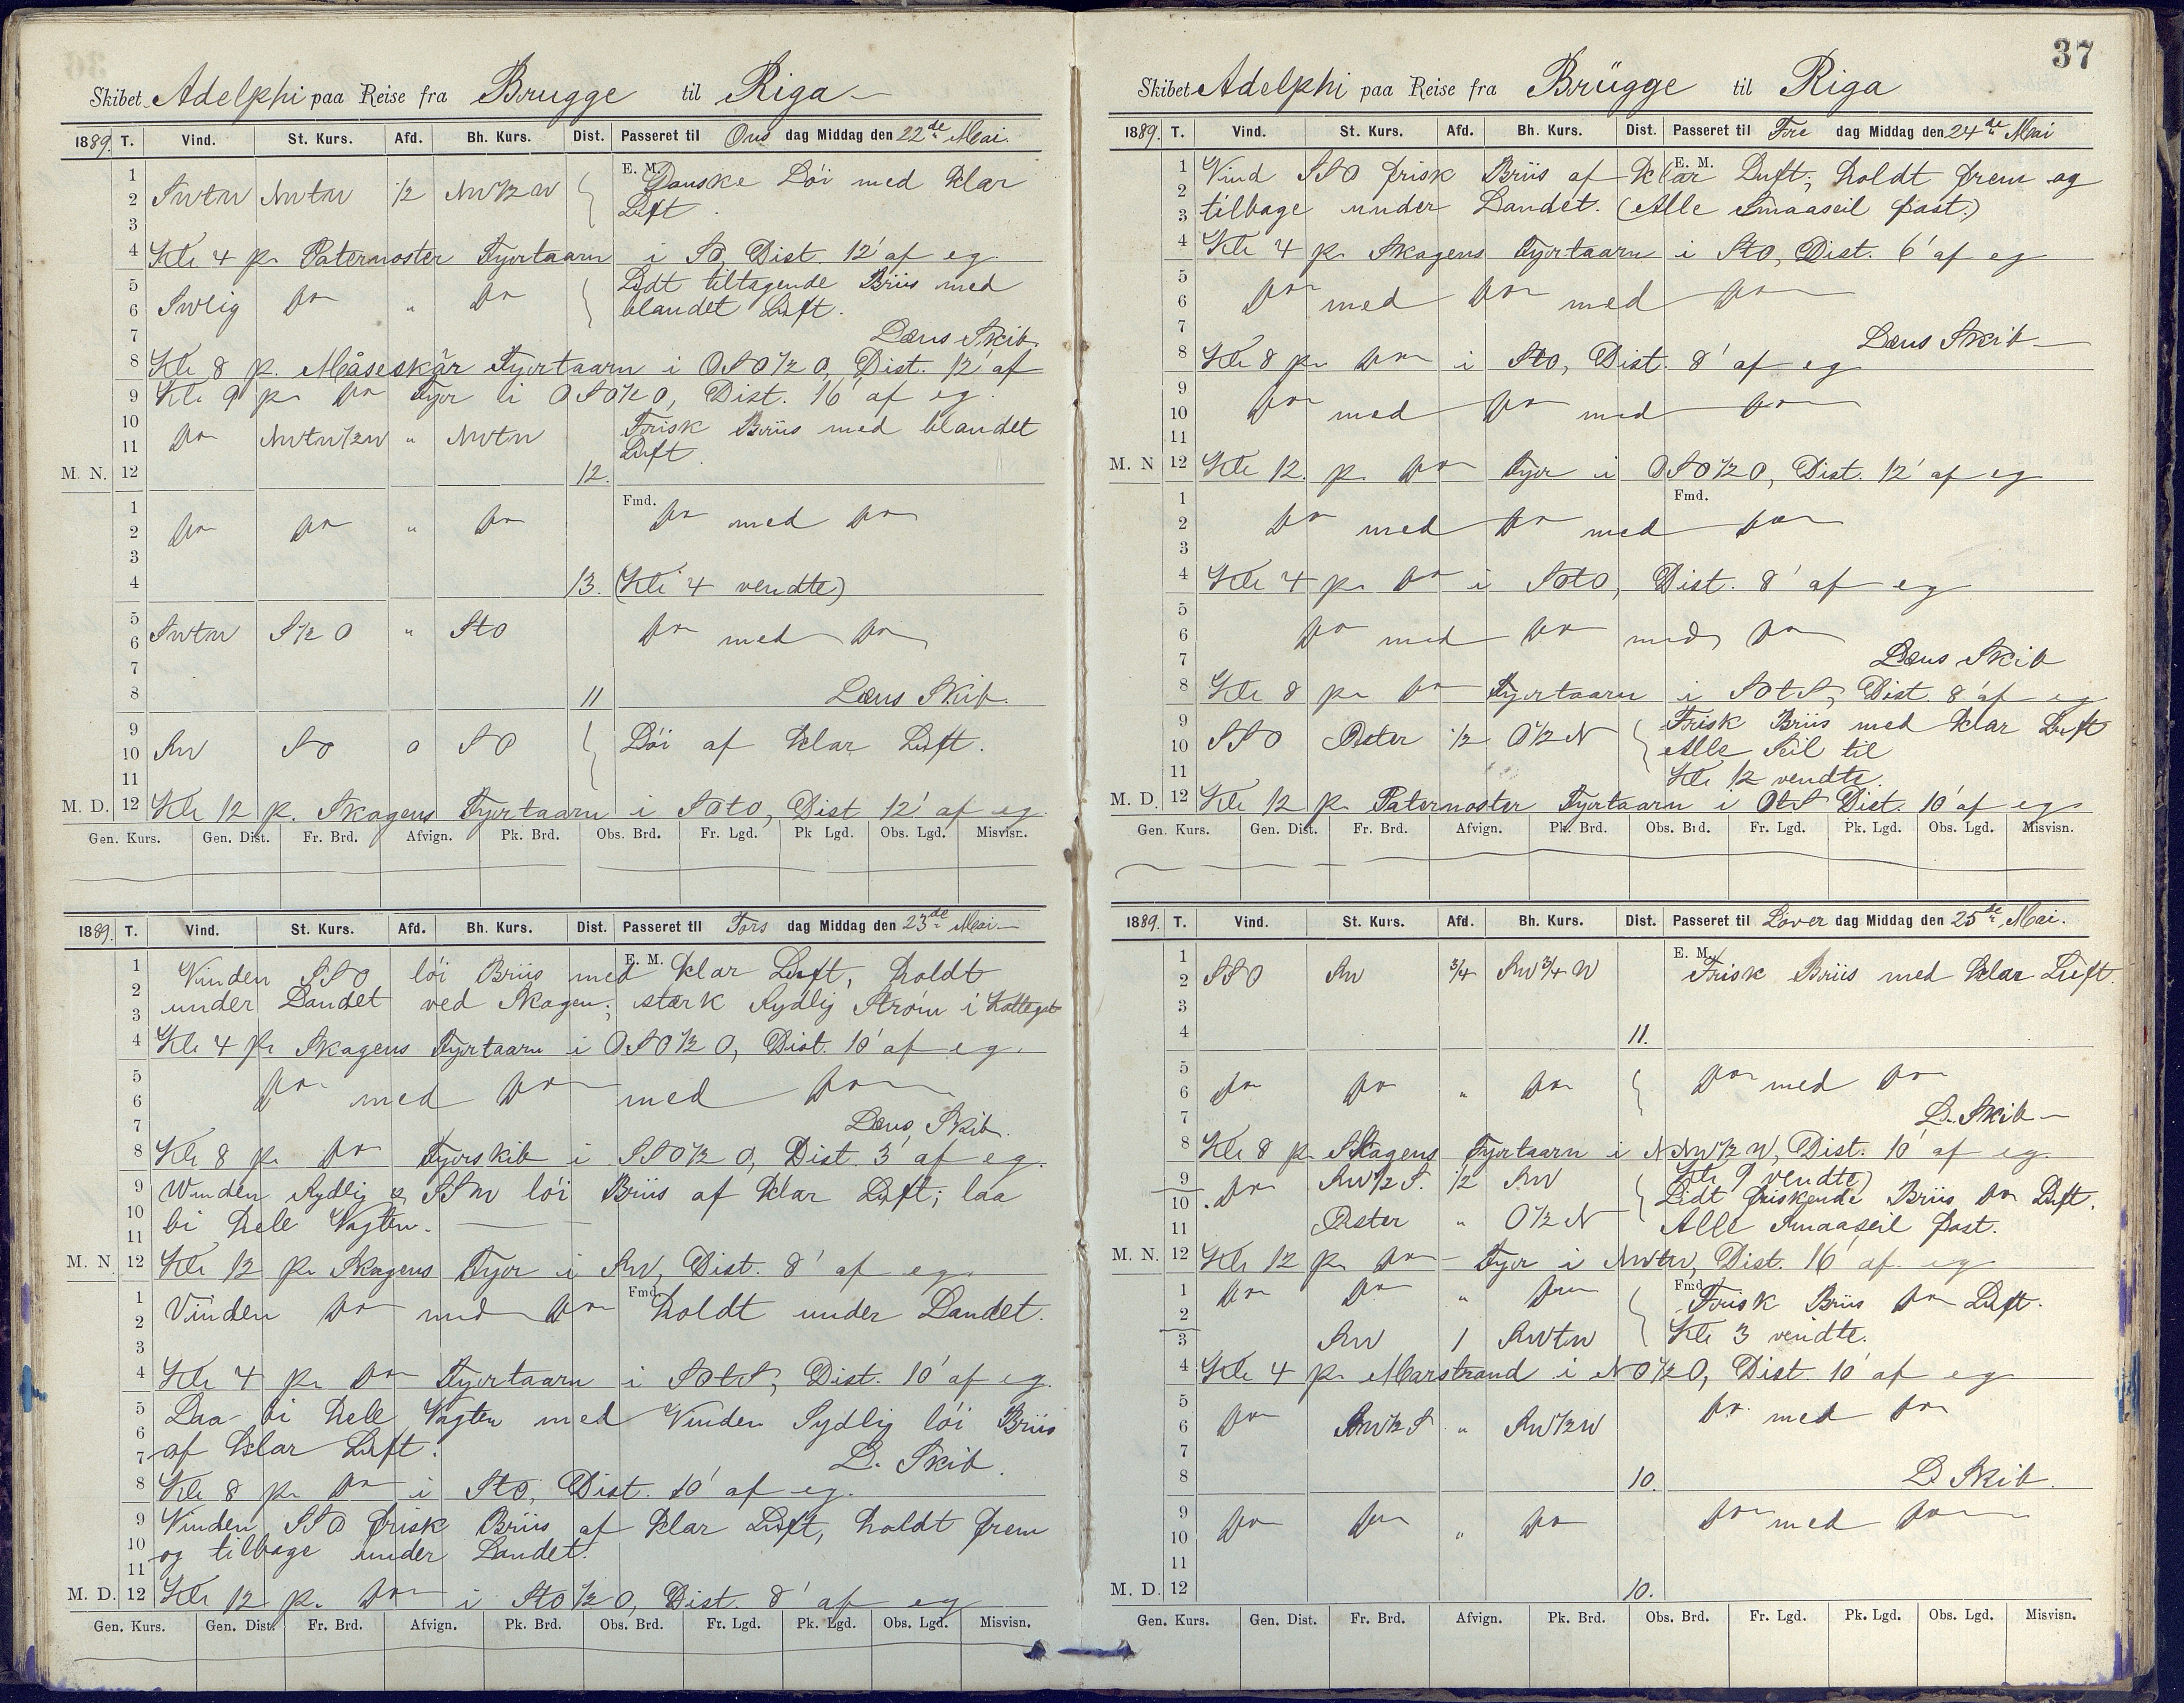 Skibet Adelphi paa Reise fra Brugge til Riga
1889. T. Vind. St. Kurs. Afd. Bh. Kurs. Dist. Passeret til Ons dag Middag den 22de Mai.
E. M.
1
2 SWtW NWtW 1/2 NW1/2W Ganske Löi med klar
3 Luft.
4 Kl. 4 p. Paternoster Fyrtaarn i SO, Dist. 12' af eg
5 Lidt tiltagende Briis med
6 SWlig do " do blandet Luft.
7 Læns Skib.
8 Kl. 8 p. Måseskär Fyrtaarn i OSO1/2O, Dist. 12' af
9 Kl. 9 p. do Fyr i OSO1/2O, Dist. 16' af eg.
10 Frisk Briis med blandet
11 do NWtW1/2W " NWtW Luft.
M. N. 12 12.
Fmd.
1
2 do do " do do med do
3
4 13. (Kl. 4 vendte)
5
6 SWtW S1/2O " StO do med do
7
8 11 Læns Skib.
9
10 SW SO 0 SO Löi af klar Luft.
11
M. D. 12 Kl. 12 p. Skagens Fyrtaarn i SOtO, Dist 12' af eg
Gen. Kurs. Gen. Dist. Fr. Brd. Afvign. Pk. Brd. Obs. Brd. Fr. Lgd. Pk Lgd. Obs. Lgd. Misvisn.
1889. T. Vind. St. Kurs. Afd. Bh. Kurs. Dist. Passeret til Tors dag Middag den 23de Mai
E. M.
1 Vinden SSO löi Briis med klar Luft, holdt
2
3 under Landet ved Skagen; stærk Sydlig Ström i Kattegat
4 Kl. 4 p. Skagens Fyrtaarn i OSO1/2O, Dist. 10' af eg.
5
6 do med do med do
7 Læns Skib.
8 Kl. 8 p. do Fyrskib i SSO1/2O, Dist. 3' af eg.
9 Winden Sydlig & SSW löi Briis af klar Luft; laa
10
11 bi hele Vagten.
M. N. 12 Kl. 12 p. Skagens Fyr i SW, Dist. 8' af eg.
Fmd.
1
2 Vinden do med do holdt under Landet.
3
4 Kl. 4 p. do Fyrtaarn i SOtS, Dist. 10' af eg.
5 Laa bi hele Vagten med Vinden Sydlig löi Briis
6
7 af klar Luft. L. Skib.
8 Kl. 8 p. do i StO, Dist. 10' af eg.
9 Vinden SSO frisk Briis af klar Luft, holdt frem
10 og tilbage under Landet.
11
M. D. 12 Kl. 12 p. do i StO1/2O, Dist. 8' af eg
Gen. Kurs. Gen. Dist. Fr. Brd. Afvign. Pk. Brd. Obs. Brd. Fr. Lgd. Pk. Lgd. Obs. Lgd. Misvisn.
37
Skibet Adelphi paa Reise fra Brügge til Riga
1889. T. Vind. St. Kurs. Afd. Bh. Kurs. Dist. Passeret til Fre dag Middag den 24de Mai
E. M.
1 Vind SSO frisk Briis af klar Luft; holdt frem og
2
3 tilbage under Landet. (Alle Smaaseil fast.)
4 Kl. 4 p. Skagens Fyrtaarn i StO, Dist. 6' af eg
5
6 do med do med do
7 Læns Skib
8 Kl. 8 p. do i StO, Dist. 8' af eg
9
10 do med do med do
11
M. N 12 Kl. 12. p. do Fyr i OSO1/2O, Dist. 12' af eg
Fmd.
1
2 do med do med do
3
4 Kl. 4 p. do i SOtO, Dist. 8' af eg
5
6 do med do med do
7 Læns Skib
8 Kl. 8 p. do Fyrtaarn i SOtS, Dist. 8' af eg
9 Frisk Briis med klar Luft
10 SSO Öster 1/2 O1/2N Alle Seil til
11 Kl. 12 vendte.
M. D. 12 Kl. 12 p. Paternoster Fyrtaarn i OtS Dist. 10' af eg.
Gen. Kurs. Gen. Dist. Fr. Brd. Afvign. Pk. Brd. Obs. Brd. Fr. Lgd. Pk. Lgd. Obs. Lgd. Misvisn.
1889. T. Vind. St. Kurs. Afd. Bh. Kurs. Dist. Passeret til Löver dag Middag den 25de Mai.
E. M.
1
2 SSO SW 3/4 SW3/4W Frisk Briis med klar Luft.
3
4 11.
5
6 do do " do do med do
7 L. Skib
8 Kl. 8 p. Skagens Fyrtaarn i NNW1/2W, Dist. 10' af eg.
9 SW1/2S. 1/2 SW Kl. 9 vendte)
10 do Lidt friskende Briis do Luft.
11 Öster " O1/2N Alle Smaaseil fast.
M. N. 12 Kl. 12 p. do Fyr i NWtW, Dist. 16' af eg
Fmd.
1 do do " do Frisk Briis do Luft.
2
3 SW 1 SWtW Kl. 3 vendte.
4 Kl. 4 p. Marstrand i NO1/2O, Dist. 10' af eg
5
6 do SW1/2S " SW1/2W do med do
7
8 10. L. Skib.
9
10 do do " do do med do
11
M. D. 12 10.
Gen. Kurs. Gen. Dist. Fr. Brd. Afvign. Pk. Brd. Obs. Brd. Fr. Lgd. Pk. Lgd. Obs. Lgd. Misvisn.